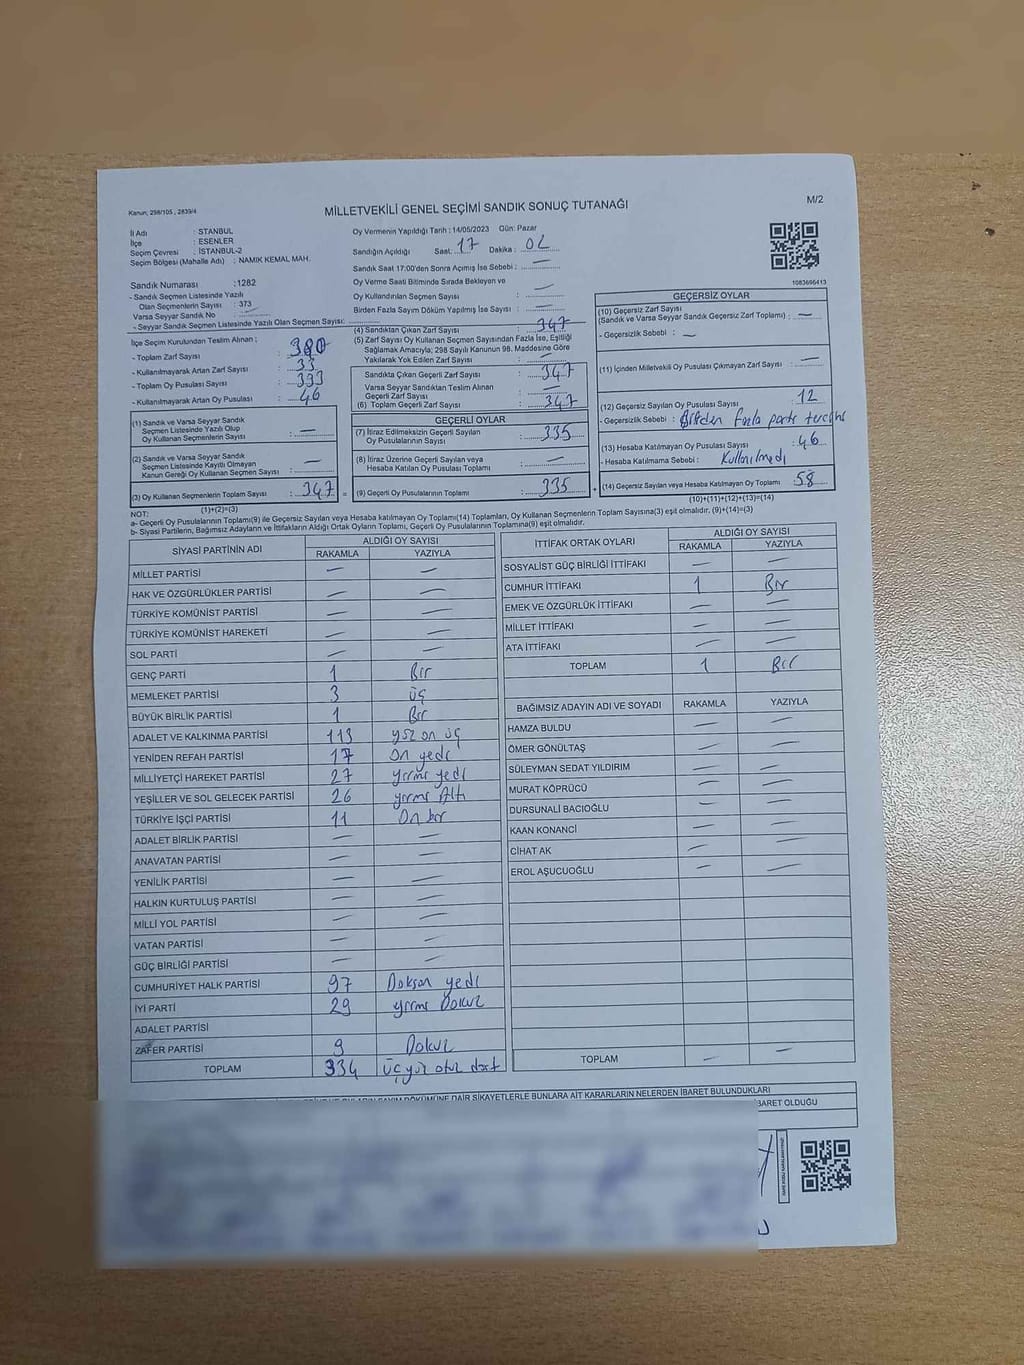 Kanun; 298/105 , 2839/4
MİLLETVEKİLİ GENEL SEÇİMİ SANDIK SONUÇ TUTANAĞI
M/2
İl Adı : İSTANBUL
İlçe : ESENLER
Seçim Çevresi : İSTANBUL-2
Seçim Bölgesi (Mahalle Adı) : NAMIK KEMAL MAH.
Sandık Numarası :1282
- Sandık Seçmen Listesinde Yazılı
Olan Seçmenlerin Sayısı : 373
Varsa Seyyar Sandık No :
- Seyyar Sandık Seçmen Listesinde Yazılı Olan Seçmen Sayısı:
İlçe Seçim Kurulundan Teslim Alınan ;
- Toplam Zarf Sayısı : 380
- Kullanılmayarak Artan Zarf Sayısı : 33
- Toplam Oy Pusulası Sayısı : 393
- Kullanılmayarak Artan Oy Pusulası : 46
(1) Sandık ve Varsa Seyyar Sandık
Seçmen Listesinde Yazılı Olup
Oy Kullanan Seçmenlerin Sayısı : —
(2) Sandık ve Varsa Seyyar Sandık
Seçmen Listesinde Kayıtlı Olmayan
Kanun Gereği Oy Kullanan Seçmen Sayısı : —
(3) Oy Kullanan Seçmenlerin Toplam Sayısı : 347
(1)+(2)=(3)
Oy Vermenin Yapıldığı Tarih : 14/05/2023 Gün: Pazar
Sandığın Açıldığı Saat: 17 Dakika : 02
Sandık Saat 17:00'den Sonra Açılmış İse Sebebi : —
Oy Verme Saati Bitiminde Sırada Bekleyen ve
Oy Kullandırılan Seçmen Sayısı : —
Birden Fazla Sayım Döküm Yapılmış İse Sayısı : —
(4) Sandıktan Çıkan Zarf Sayısı : 347
(5) Zarf Sayısı Oy Kullanan Seçmen Sayısından Fazla İse, Eşitliği
Sağlamak Amacıyla; 298 Sayılı Kanunun 98. Maddesine Göre
Yakılarak Yok Edilen Zarf Sayısı : —
Sandıkta Çıkan Geçerli Zarf Sayısı : 347
Varsa Seyyar Sandıktan Teslim Alınan
Geçerli Zarf Sayısı : —
(6) Toplam Geçerli Zarf Sayısı : 347
GEÇERLİ OYLAR
(7) İtiraz Edilmeksizin Geçerli Sayılan
Oy Pusulalarının Sayısı : 335
(8) İtiraz Üzerine Geçerli Sayılan veya
Hesaba Katılan Oy Pusulası Toplamı : —
(9) Geçerli Oy Pusulalarının Toplamı : 335
1083696413
GEÇERSİZ OYLAR
(10) Geçersiz Zarf Sayısı
(Sandık ve Varsa Seyyar Sandık Geçersiz Zarf Toplamı) : —
- Geçersizlik Sebebi : —
(11) İçinden Milletvekili Oy Pusulası Çıkmayan Zarf Sayısı : —
(12) Geçersiz Sayılan Oy Pusulası Sayısı : 12
- Geçersizlik Sebebi : Birden fazla parti tercihi
(13) Hesaba Katılmayan Oy Pusulası Sayısı : 46
- Hesaba Katılmama Sebebi : Kullanılmadı
(14) Geçersiz Sayılan veya Hesaba Katılmayan Oy Toplamı : 58
(10)+(11)+(12)+(13)=(14)
NOT:
a- Geçerli Oy Pusulalarının Toplamı(9) ile Geçersiz Sayılan veya Hesaba katılmayan Oy Toplamı(14) Toplamları, Oy Kullanan Seçmenlerin Toplam Sayısına(3) eşit olmalıdır. (9)+(14)=(3)
b- Siyasi Partilerin, Bağımsız Adayların ve İttifakların Aldığı Ortak Oyların Toplamı, Geçerli Oy Pusulalarının Toplamına(9) eşit olmalıdır.
SİYASİ PARTİNİN ADI ALDIĞI OY SAYISI
RAKAMLA YAZIYLA
MİLLET PARTİSİ — —
HAK VE ÖZGÜRLÜKLER PARTİSİ — —
TÜRKİYE KOMÜNİST PARTİSİ — —
TÜRKİYE KOMÜNİST HAREKETİ — —
SOL PARTİ — —
GENÇ PARTİ 1 Bir
MEMLEKET PARTİSİ 3 üç
BÜYÜK BİRLİK PARTİSİ 1 Bir
ADALET VE KALKINMA PARTİSİ 113 yüz on üç
YENİDEN REFAH PARTİSİ 17 On yedi
MİLLİYETÇİ HAREKET PARTİSİ 27 yirmi yedi
YEŞİLLER VE SOL GELECEK PARTİSİ 26 yirmi Altı
TÜRKİYE İŞÇİ PARTİSİ 11 On bir
ADALET BİRLİK PARTİSİ — —
ANAVATAN PARTİSİ — —
YENİLİK PARTİSİ — —
HALKIN KURTULUŞ PARTİSİ — —
MİLLİ YOL PARTİSİ — —
VATAN PARTİSİ — —
GÜÇ BİRLİĞİ PARTİSİ — —
CUMHURİYET HALK PARTİSİ 97 Doksan yedi
İYİ PARTİ 29 yirmi Dokuz
ADALET PARTİSİ
ZAFER PARTİSİ 9 Dokuz
TOPLAM 334 üçyüz otuz dört
İTTİFAK ORTAK OYLARI ALDIĞI OY SAYISI
RAKAMLA YAZIYLA
SOSYALİST GÜÇ BİRLİĞİ İTTİFAKI — —
CUMHUR İTTİFAKI 1 Bir
EMEK VE ÖZGÜRLÜK İTTİFAKI — —
MİLLET İTTİFAKI — —
ATA İTTİFAKI — —
TOPLAM 1 Bir
BAĞIMSIZ ADAYIN ADI VE SOYADI RAKAMLA YAZIYLA
HAMZA BULDU — —
ÖMER GÖNÜLTAŞ — —
SÜLEYMAN SEDAT YILDIRIM — —
MURAT KÖPRÜCÜ — —
DURSUNALİ BACIOĞLU — —
KAAN KONANCİ — —
CİHAT AK — —
EROL AŞUCUOĞLU — —
TOPLAM — —
SAYIM DÖKÜMÜNE DAİR ŞİKAYETLERLE BUNLARA AİT KARARLARIN NELERDEN İBARET BULUNDUKLARI
İBARET OLDUĞU